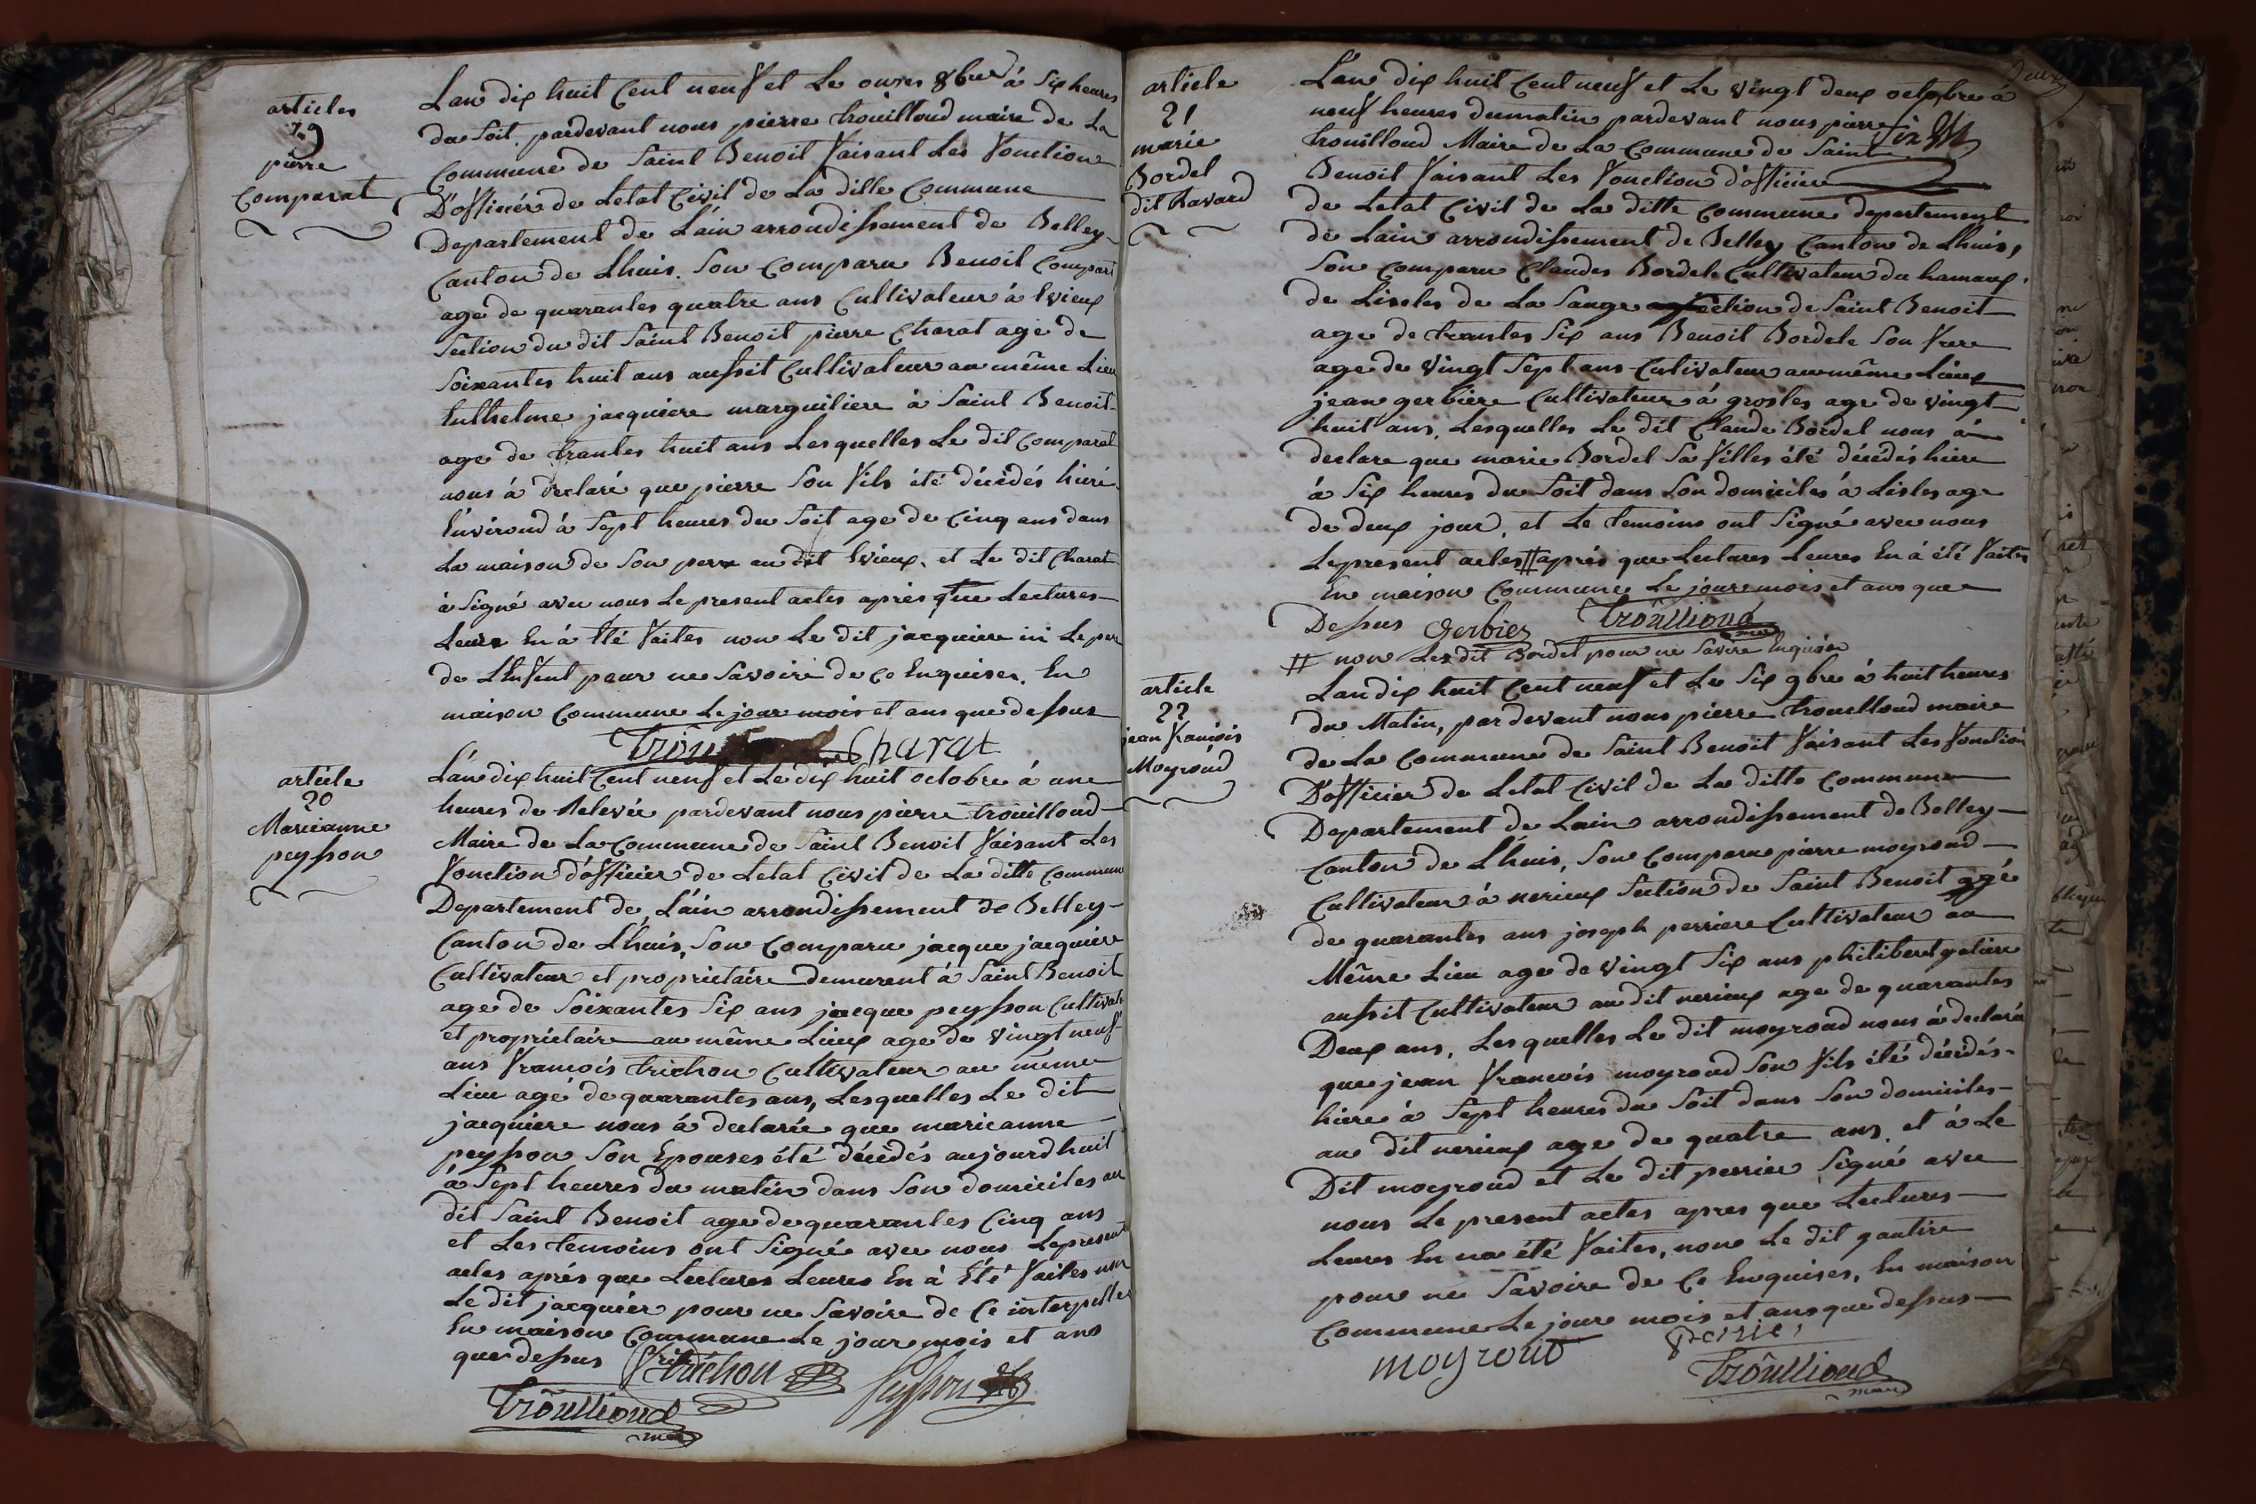 articles
19
pierre
Comparat
Lan dix huit Cent neuf et Le onzes 8bre à Six heures
du Soit, pardevant nous pierre trouilloud maire de La
Commune de Saint Benoit faisant Les fonction
D'officiér de Letat Civil de La ditte Commune
Departement de L'ain arrondissement de Belley
Canton de Lhuis. Son Comparu Benoit Comparat
age de quarantes quatre ans Cultivateur à Evieux
Section du dit Saint Benoit pierre Charat age de
Soixantes huit ans aussit Cultivateur au même Lieu
Enthelme jacquiere marguiliere à Saint Benoit
age de trantes huit ans Lesquelles Le dit Comparat
nous à declaré que pierre Son fils été décédés hiere
Environd à Sept heures du Soit age de Cinq ans dans
La maison de Son perre au dit Evieux. et Le dit Charat
à Signé avec nous Le present actes aprés que Lectures
Leure En à Eté faites non Le dit jacquiere ni Le per
de L'Enfent pour ne Savoire de Ce Enquises. En
maison Commune Le jour mois et ans que dessus
Charat
article
20
Marieanne
peysson
L'an dix huit Cent neuf et Le dix huit octobre à une
heures de Relevée pardevant nous pierre trouilloud
Maire de La Commune de Saint Benoit faisant Les
fonction d'officier de Letat Civil de La ditte Commune
Departement de L'ain arrondissement de Belley
Canton de Lhuis, Son Comparu jacque jacquiere
Cultivateur et proprietaire demurent à Saint Benoit
age de Soixantes Six ans jacque peysson Cultivat
et proprietaire au même Lieux age De vingt neuf
ans francois trichon Cultivateur au même
Lieu agé de quarantes ans, Lesquelles Le dit
jacquiere nous à declarée que marieanne
peysson Son Epouses été décédés aujourdhuit
à Sept heures du matin dans Son domiciles au
dit Saint Benoit age de quarantes Cinq ans
et Les temoins ont Signé avec nous Le present
actes aprés que Lectures Leures En à Eté faites non
Le dit jacquiér pour ne Savoire de Ce interpelles
En maison Commune Le jour mois et ans
que dessus
trichon
peysson
Trouilloud
maire
article
21
marie
Bordel
dit Ravard
L'an dix huit Cent neuf et Le vingt deux octobre à
neuf heures du matin pardevant nous pierre
trouilloud Maire de La Commune de Saint
Benoit faisant Les fonction d'officiere
de Letat Civil de La ditte Commune departement
de Lain arrondissement de Belley Canton de Lhuis,
Son Comparu Claudes Bordel Cultivateur du hamaux
de Lisoles de La Sauge Section de Saint Benoit
age de trantes Six ans Benoit Bordele Son frere
age de vingt Sept ans Cultivateur au même Lieux
jean gerbiére Cultivateur à groslés age de vingt
huit ans, Lesquelles Le dit Claude Bordel nous à
declare que marie Bordel Sa filles été décédés hiere
à Six heures du Soit dans Son domiciles à Lisles age
de deux jour, et Le temoins ont Signé avec nous
Le present actes # aprés que Lectures Leures En à été faites
En maison Commune Le jour mois et ans que
Dessus Gerbier Trouilloud
# non Les dit Bordel pour ne Savoire Enquise
article
22
jean francois
Moyroud
L'an dix huit Cent neuf et Le Six 9bre à huit heures
du Matin, par devant nous pierre trouelloud maire
de La Commune de Saint Benoit faisant Les fonction
D'officier de Letat Civil de La ditte Commune
Departement de Lain arrondissement de Belley
Canton de Lhuis, Son Comparu pierre moyroud
Cultivateur à nerieux Section de Saint Benoit agé
de quarantes ans joseph perriere Cultivateur au
Même Lieu age de vingt Six ans philibert gotiere
aussit Cultivateur au dit nerieux age de quarantes
Deux ans. Lesquelles Le dit moyroud nous à declaré
que jean francois moyroud Son fils été décédés
hiere à Sept heures du Soit dans Son domiciles
au dit nerieux age de quatre ans, et à Le
Dit moyroud et Le dit perrier Signé avec
nous Le present actes apres que Lectures
Leures En na été faites, non Le dit gautire
pour ne Savoire de Ce Enquises, En maison
Commune Le joure mois et ans que dessus
moyroud
perrier
Trouilloud
maire